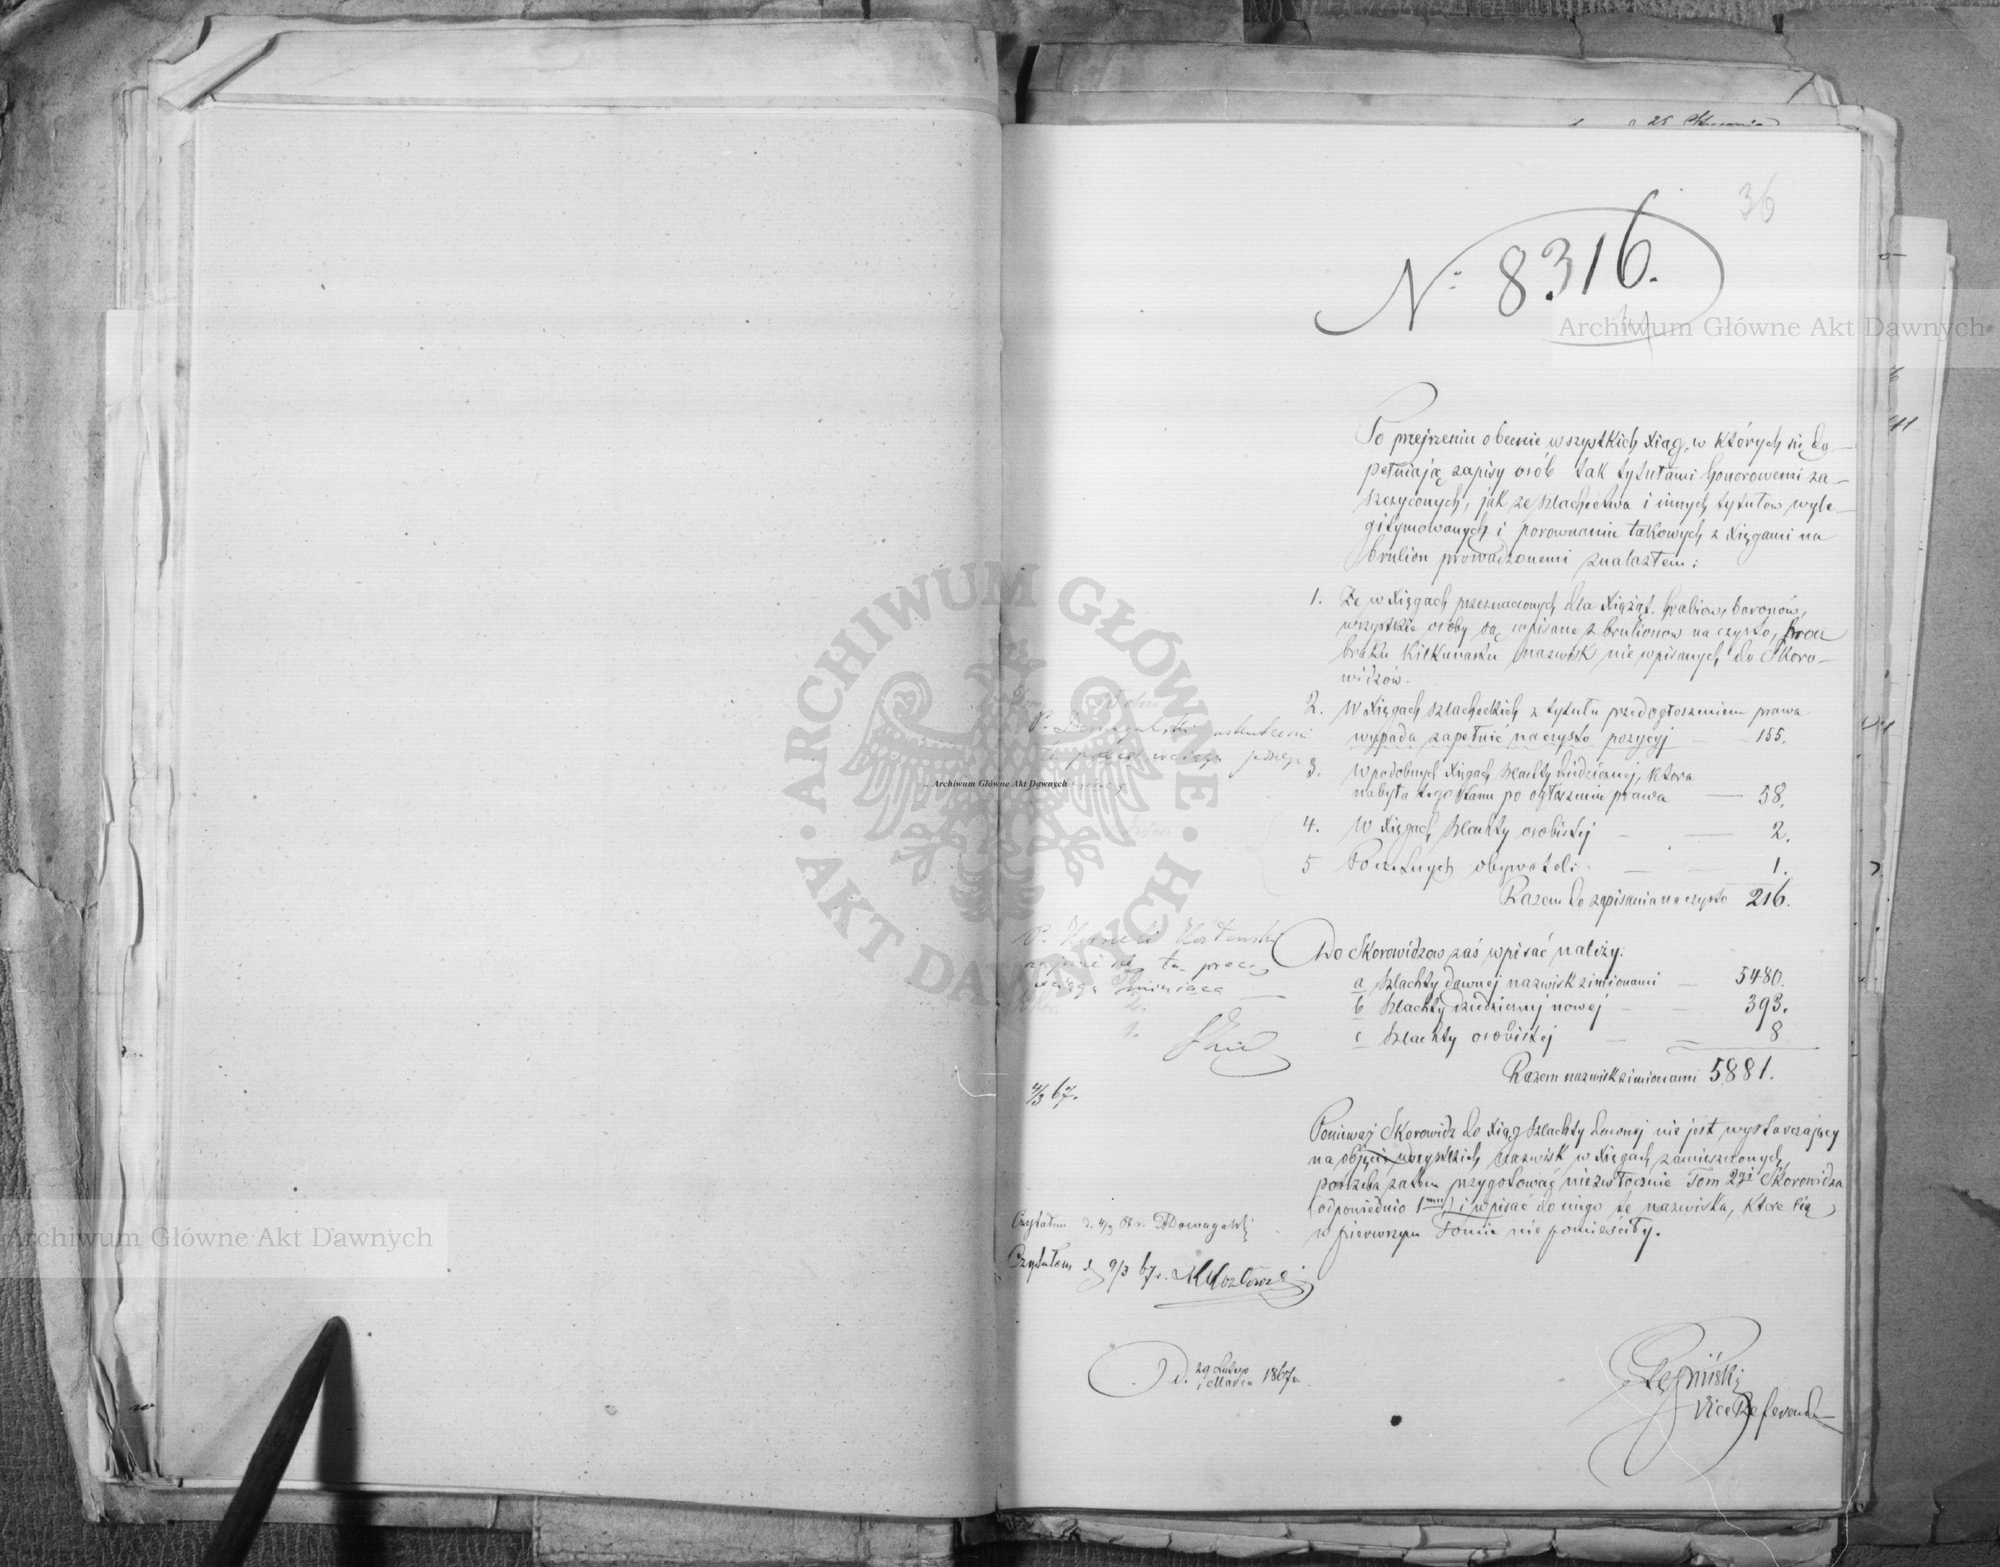 25
36
N: 8316.
Archiwum Główne Akt Dawnych
Po przejrzeniu obecnie wszystkich xiąg, w których się do-
pełniają zapisy osób tak tytułami honorowemi za-
szczyconych, jak ze szlachectwa i innych tytułów wyle-
gitymowanych i porównaniu takowych z xięgami na
brulion prowadzonemi znalazłem:
1. Że w xięgach przeznaczonych dla xiążąt, hrabiów, baronów,
wszystkie osoby są wpisane z brulionów na czysto, prócz
braku kilkunastu nazwisk nie wpisanych do Skoro-
widzów.
2. W xięgach szlacheckich z tytułu przed ogłoszeniem prawa
wypada zapełnić na czysto pozycyj — 155.
3. W podobnych xięgach szlachty dziedzicznej, która
nabyła tego stanu po ogłoszeniu prawa — 58.
4. W xięgach szlachty osobistej — 2.
5 Poczetnych obywateli — 1.
Razem do zapisania na czysto 216.
Do Skorowidzow zaś wpisać należy:
a Szlachty dawnej nazwisk z imionami — 5480.
b Szlachty dziedzicznej nowej — 393.
c Szlachty osobistej — 8
Razem nazwisk z imionami 5881.
Ponieważ Skorowidz do xiąg szlachty dawnej nie jest wystarczający
na objęcie wszystkich nazwisk w xięgach zamieszczonych,
potrzeba zatem przygotować niezwłocznie Tom 2gi Skorowidza
(odpowiednio 1mu) i wpisać do niego te nazwiska, które się
w pierwszym Tomie nie pomieściły.
Vice Referendarz
P.
w ciągu
P.
zajmie się tą pracą
w ciągu miesiąca
4/3 67.
Czytałem d. 4/3 Domagalski
Czytałem d 9/3 67 r. Kozłowski
D. 29 Lutego
1 Marca 1867 r.
Archiwum Główne Akt Dawnych
Archiwum Główne Akt Dawnych
ARCHIWUM GŁÓWNE · AKT DAWNYCH ·
41